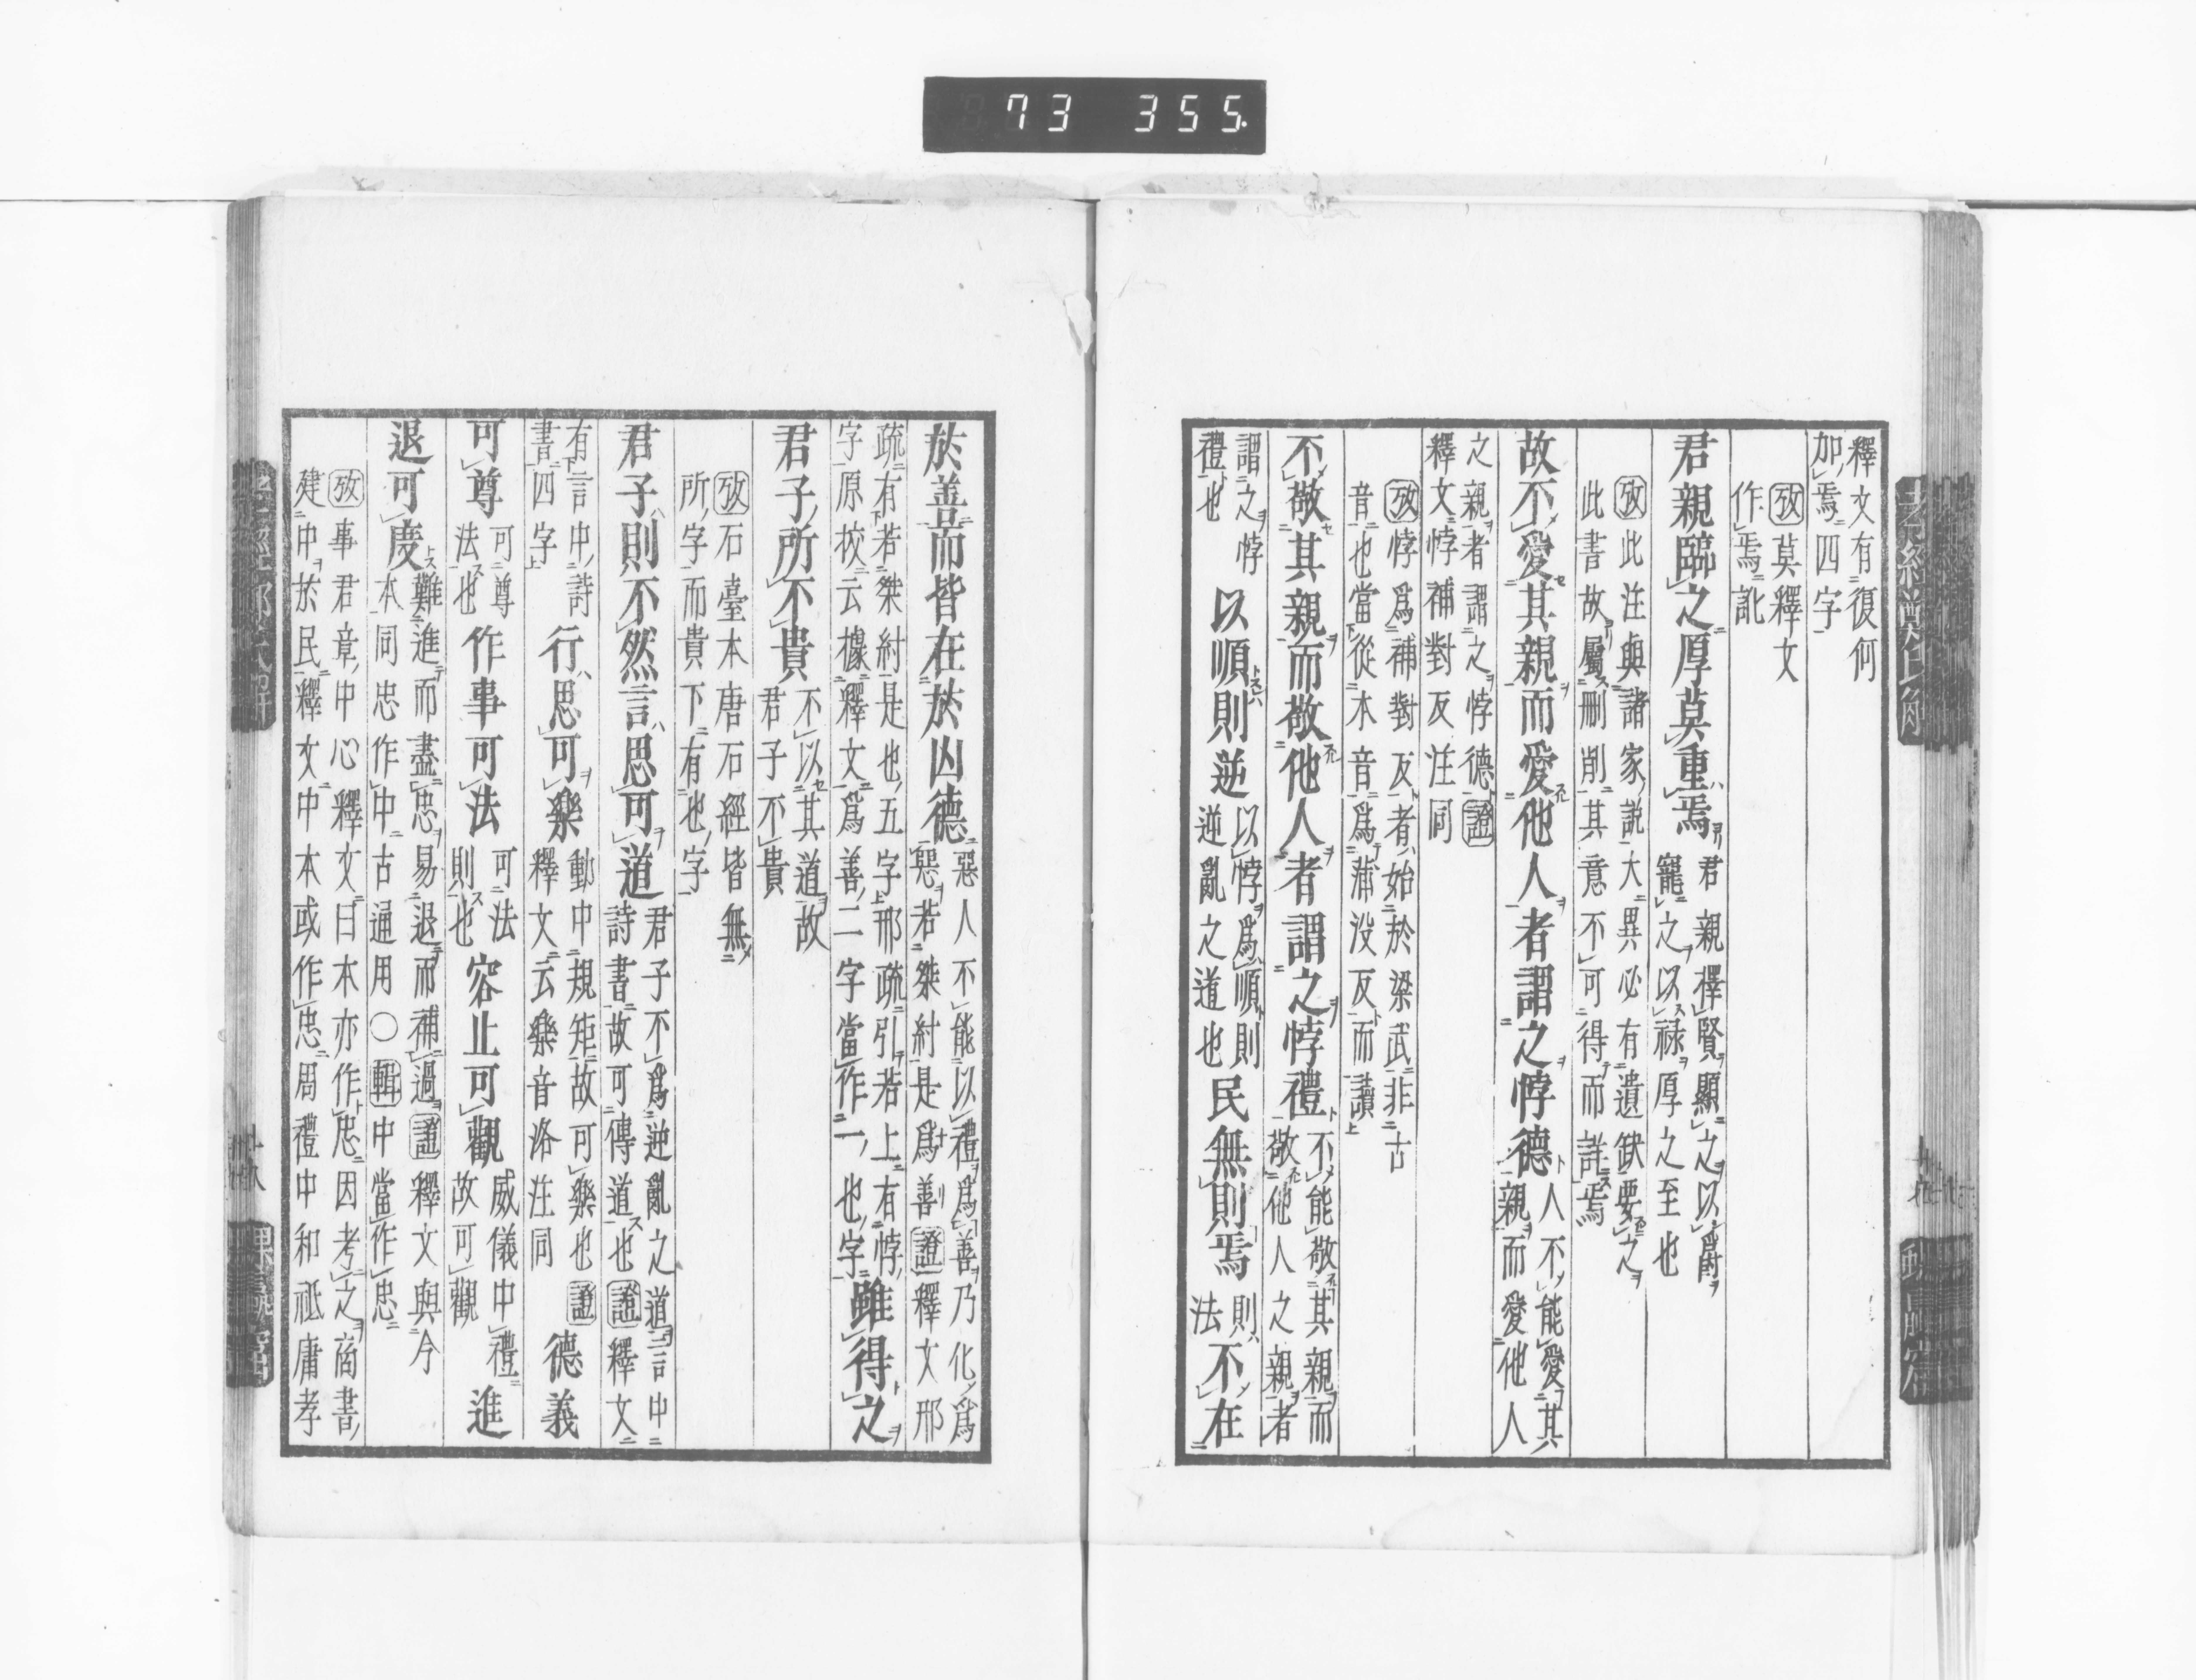 73 355.
釋文有復何
加焉四字
攷莫釋文
作焉訛
君親臨之厚莫重焉
君親擇賢顯之以爵
寵之以祿厚之至也
攷此注與諸家說大異必有遺缺要之
此書故屬刪削其意不可得而詳焉
故不愛其親而愛他人者謂之悖德
人不能愛其
親而愛他人
之親者謂之悖德證
釋文悖補對反注同
攷悖爲補對反者始於梁武非古
音也當從本音爲蒲没反而讀
不敬其親而敬他人者謂之悖禮
不能敬其親而
敬他人之親者
謂之悖
禮也
以順則逆
以悖爲順則
逆亂之道也
民無則焉
則
法
不在
於善而皆在於凶德
惡人不能以禮爲善乃化爲
惡若桀紂是爲善證釋文邢
疏有若桀紂是也五字邢疏引若上有悖
字原挍云據釋文爲善二字當作一也字
雖得之
君子所不貴
不以其道故
君子不貴
攷石臺本唐石經皆無
所字而貴下有也字
君子則不然言思可道
君子不爲逆亂之道言中
詩書故可傳道也證釋文
有言中詩
書四字
行思可樂
動中規矩故可樂也證
釋文云樂音洛注同
德義
可尊
可尊
法也
作事可法
可法
則也
容止可觀
威儀中禮
故可觀
進
退可度
難進而盡忠易退而補過證釋文與今
本同忠作中古通用〇輯中當作忠
攷事君章中心釋文曰本亦作忠因考之商書
建中於民釋文中本或作忠周禮中和祗庸孝